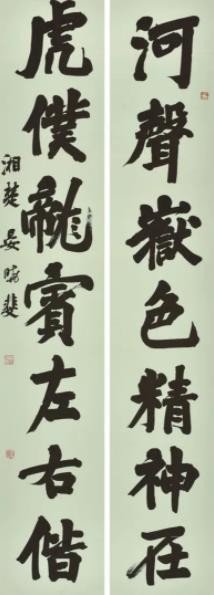 河聲嶽色精神在
虎僕龍賓左右偕
湘楚晏曉斐